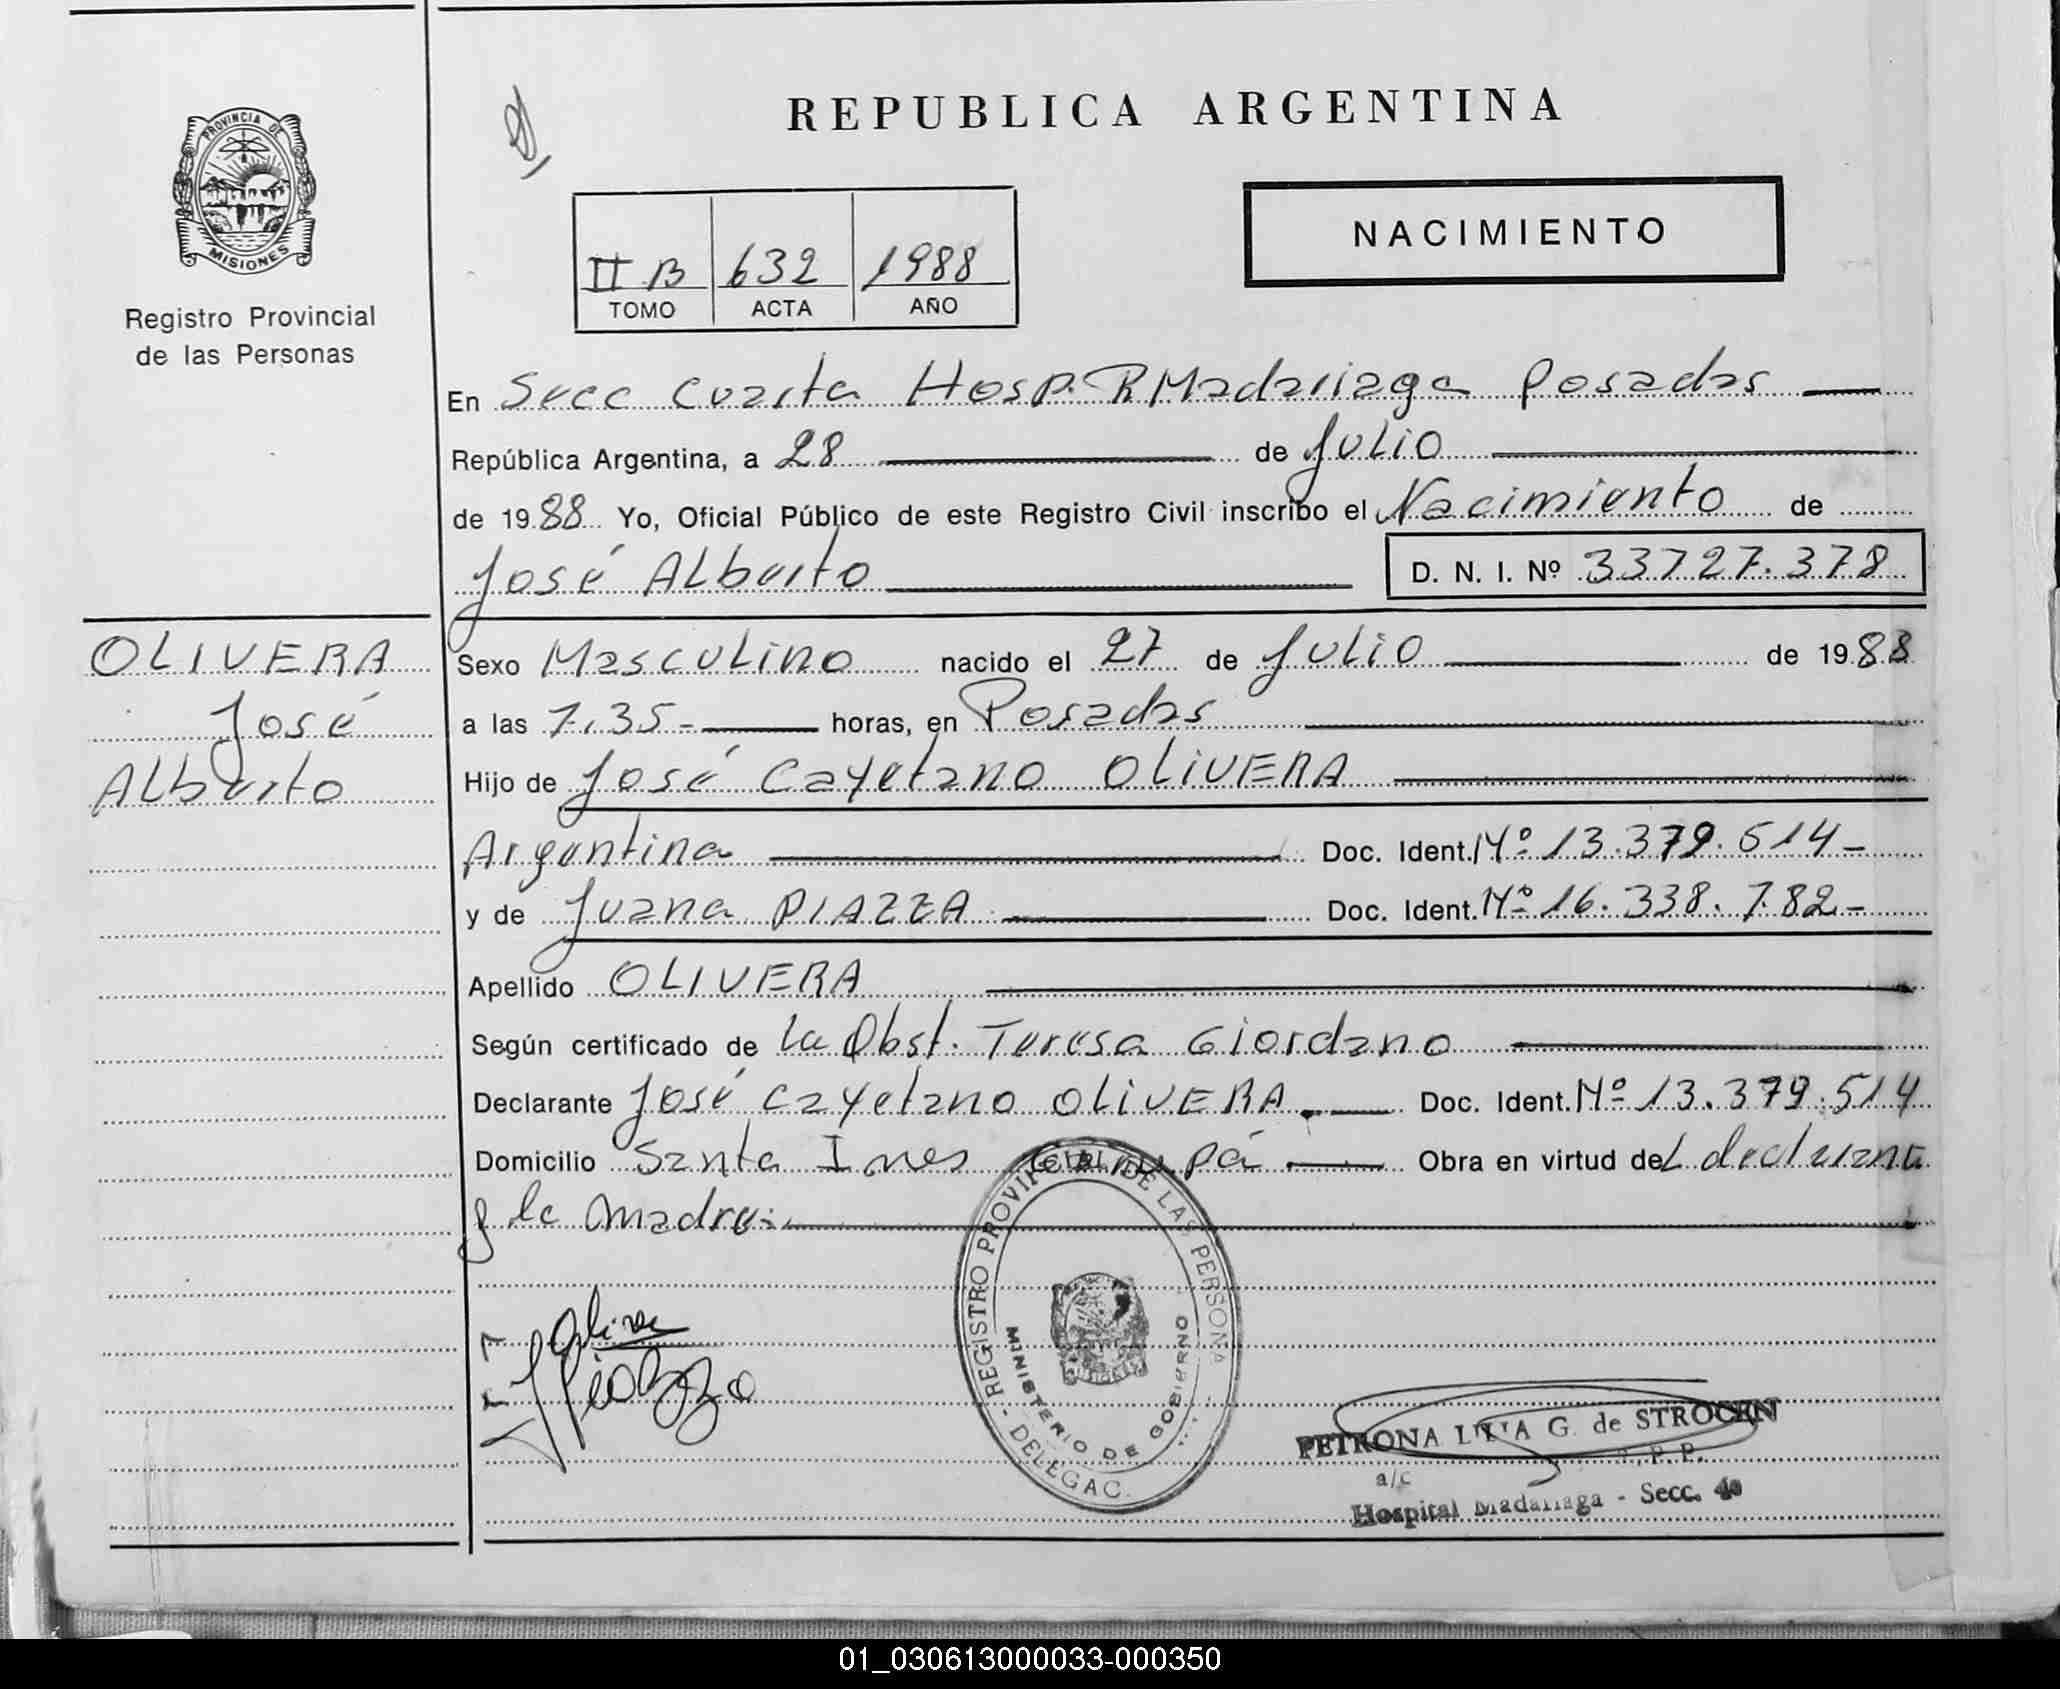 REPUBLICA ARGENTINA
PROVINCIA DE
MISIONES
Registro Provincial
de las Personas
II B 632 1988
TOMO ACTA AÑO
NACIMIENTO
En Secc Cuarta Hosp. R Madariaga Posadas
República Argentina, a 28 de Julio
de 1988 Yo, Oficial Público de este Registro Civil inscribo el Nacimiento de
José Alberto D. N. I. Nº 33727.378
OLIVERA
José
Alberto
Sexo Masculino nacido el 27 de Julio de 1988
a las 7.35- horas, en Posadas
Hijo de José Cayetano OLIVERA
Argentina Doc. Ident. Nº 13.379.514-
y de Juana PIAZZA Doc. Ident. Nº 16.338.782-
Apellido OLIVERA
Según certificado de la Obst. Teresa Giordano
Declarante José Cayetano OLIVERA.- Doc. Ident. Nº 13.379.514
Domicilio Santa Ines Obra en virtud del declarante
y la madre.
REGISTRO PROVINCIAL DE LAS PERSONA
MINISTERIO DE GOBIERNO
- DELEGAC.
PETRONA LILIA G. de STROCEN
a/c
Hospital Madariaga - Secc. 4a
01_030613000033-000350